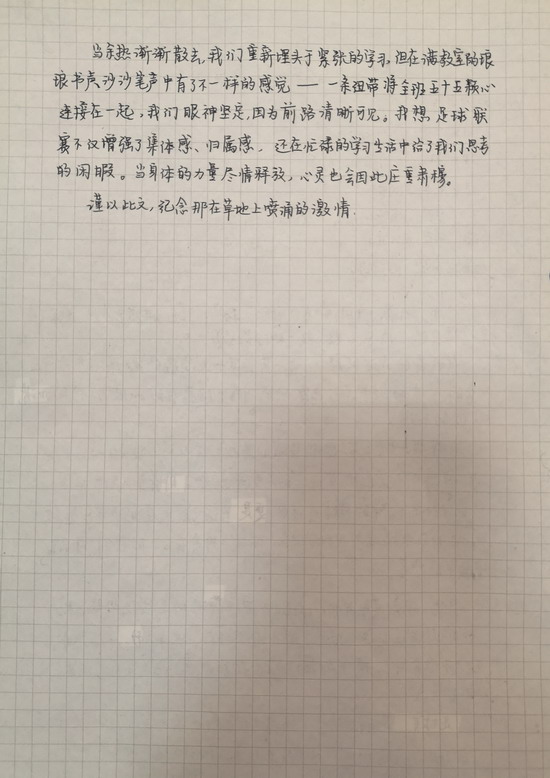 当余热渐渐散去,我们重新埋头于紧张的学习,但在满教室的琅
琅书声沙沙笔声中有了不一样的感觉——一条纽带将全班五十五颗心
连接在一起,我们眼神坚定,因为前路清晰可见。我想足球联
赛不仅增强了集体感、归属感,还在忙碌的学习生活中给了我们思考
的闲暇。当身体的力量尽情释放,心灵也会因此庄重肃穆。
谨以此文,纪念那在草地上喷涌的激情.